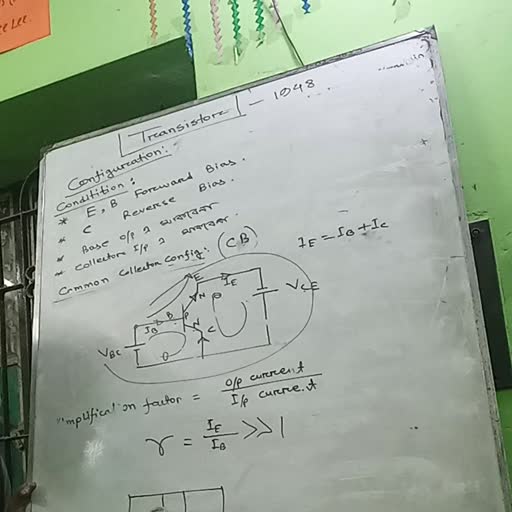 Transistors - 1948
Configuration:
Condition:
* E, B Forward Bias.
* C Reverse Bias.
* Base o/p
* Collector I/p
Common Collector Config: (CB)
I_E = I_B + I_C
E
I_E
N
B
P
I_B
N
C
V_CE
V_BC
Amplification factor = o/p current / I/p current
γ = I_E / I_B >> 1